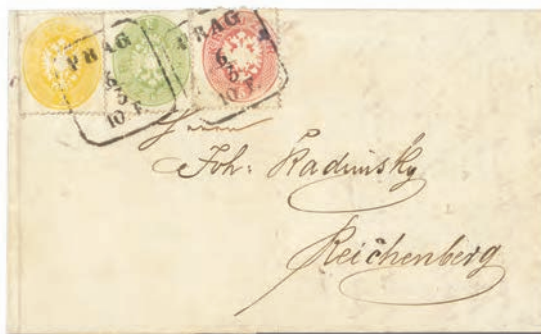 PRAG
6/5
10 F.
PRAG
6/5
10 F.
Herrn
Joh: Radimsky
Reichenberg